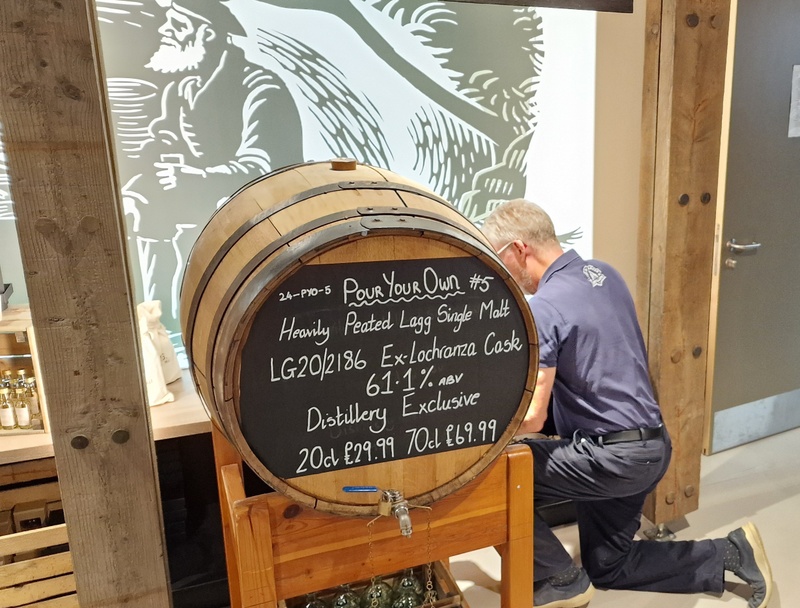 24-PYO-5 Pour Your Own #5
Heavily Peated Lagg Single Malt
LG20/2186 Ex-Lochranza Cask
61.1% ABV
Distillery Exclusive
20cl £29.99 70cl £69.99